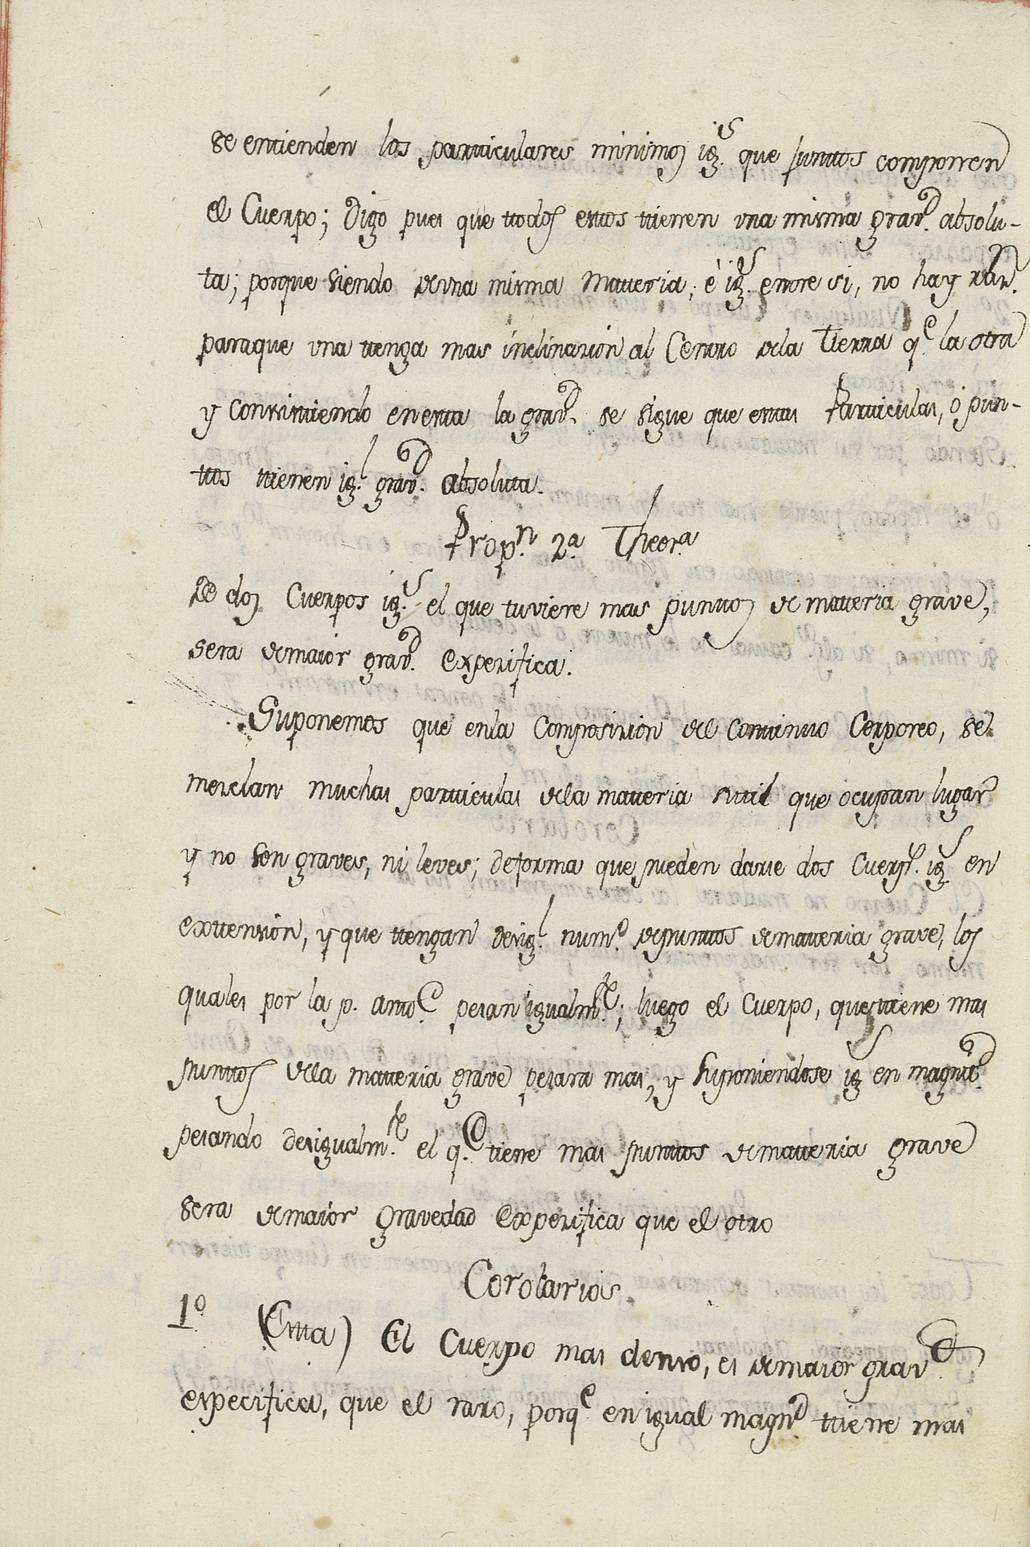 se entienden los particulares minimos ig.s que juntos componen
el Cuerpo; digo pues que ttodos esttos ttienen una misma grav.d absolu-
ta; porque siendo de una misma matteria, è ig.s enttre si, no hay raz.n
paraque una ttenga mas inclinazion al Centtro dela Tierra q.e la otra
y consisttiendo en estta la grav.d se sigue que esttas Partticulas, ò pun-
ttos ttienen ig.l grav.d absolutta.
Prop.n 2.a Theor.a
De dos Cuerpos ig.s el que tuviere mas punttos de matteria grave,
sera de maior grav.d expezifica.
Suponemos que enla Composizion del Conttinuo Corporeo, se
mezclan muchas partticulas dela matteria suttil que ocupan lugar
y no son graves, ni leves; deforma que pueden darse dos Cuerp.s ig.s en
exttension, y que ttengan desig.l num.o de punttos de matteria grave, los
quales por la p. antt.e pesan igualm.te; luego el Cuerpo, que ttiene mas
punttos dela matteria grave pesara mas, y suponiendose ig.s en magnit.d
pesando desigualm.te el q.e ttiene mas punttos de matteria grave
sera de maior gravedad expezifica que el otro
Corolarios.
1.o (Estta) El Cuerpo mas denso, es de maior grav.d
especifica, que el raro, porq.e en igual magn.d ttiene mas